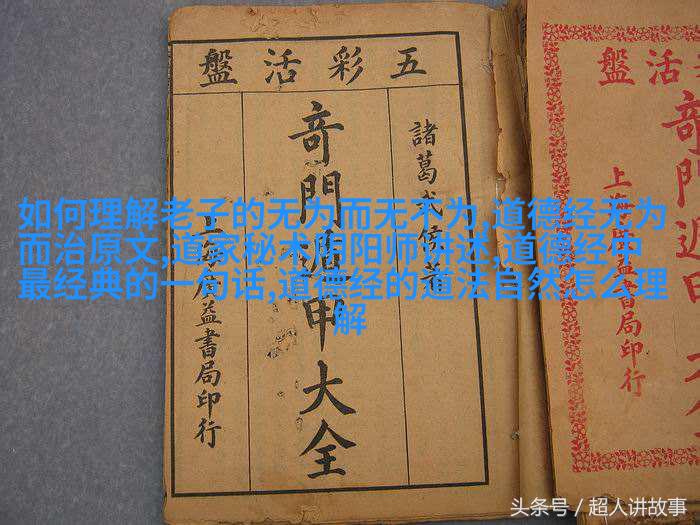 五彩活盤
諸葛武侯著
奇門遁甲大全
上海廣益書局印行
活盤
奇門遁甲大全
上海廣益書局印行
如何理解老子的无为而无不为,道德经无为
而治原文,道家秘术阴阳师讲述,道德经中
最经典的一句话,道德经的道法自然怎么理
解
头条号 / 超人讲故事